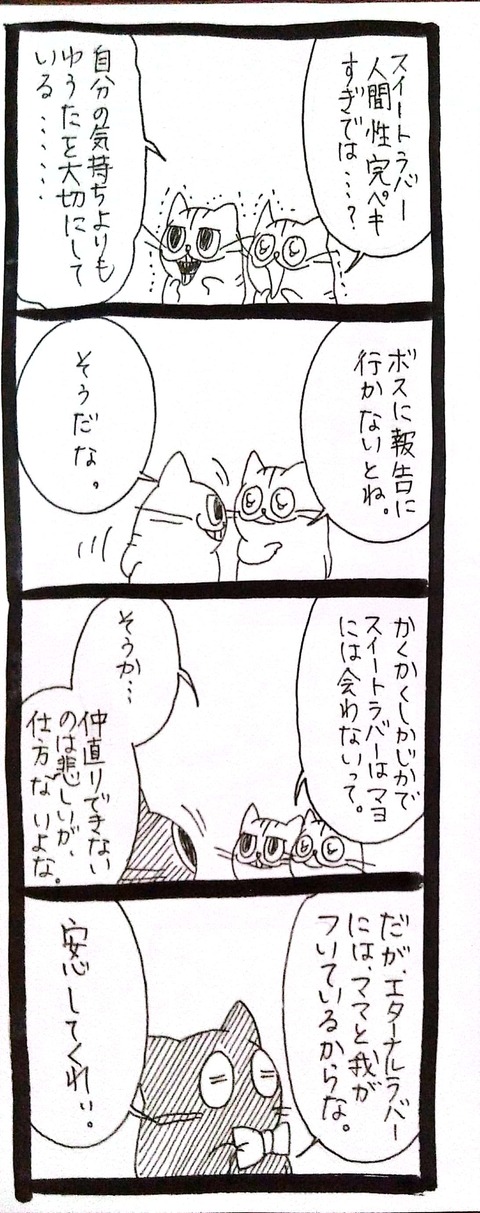 スイートラバー
人間性完ペキ
すぎでは…?
自分の気持ちよりも
ゆうたを大切にして
いる……
ボスに報告に
行かないとね。
そうだな。
かくかくしかじかで
スイートラバーはマヨ
には会わないって。
そうか…
仲直りできない
のは悲しいが、
仕方ないよな。
だが、エターナルラバー
には、ママと我が
ついているからな。
安心してくれい。